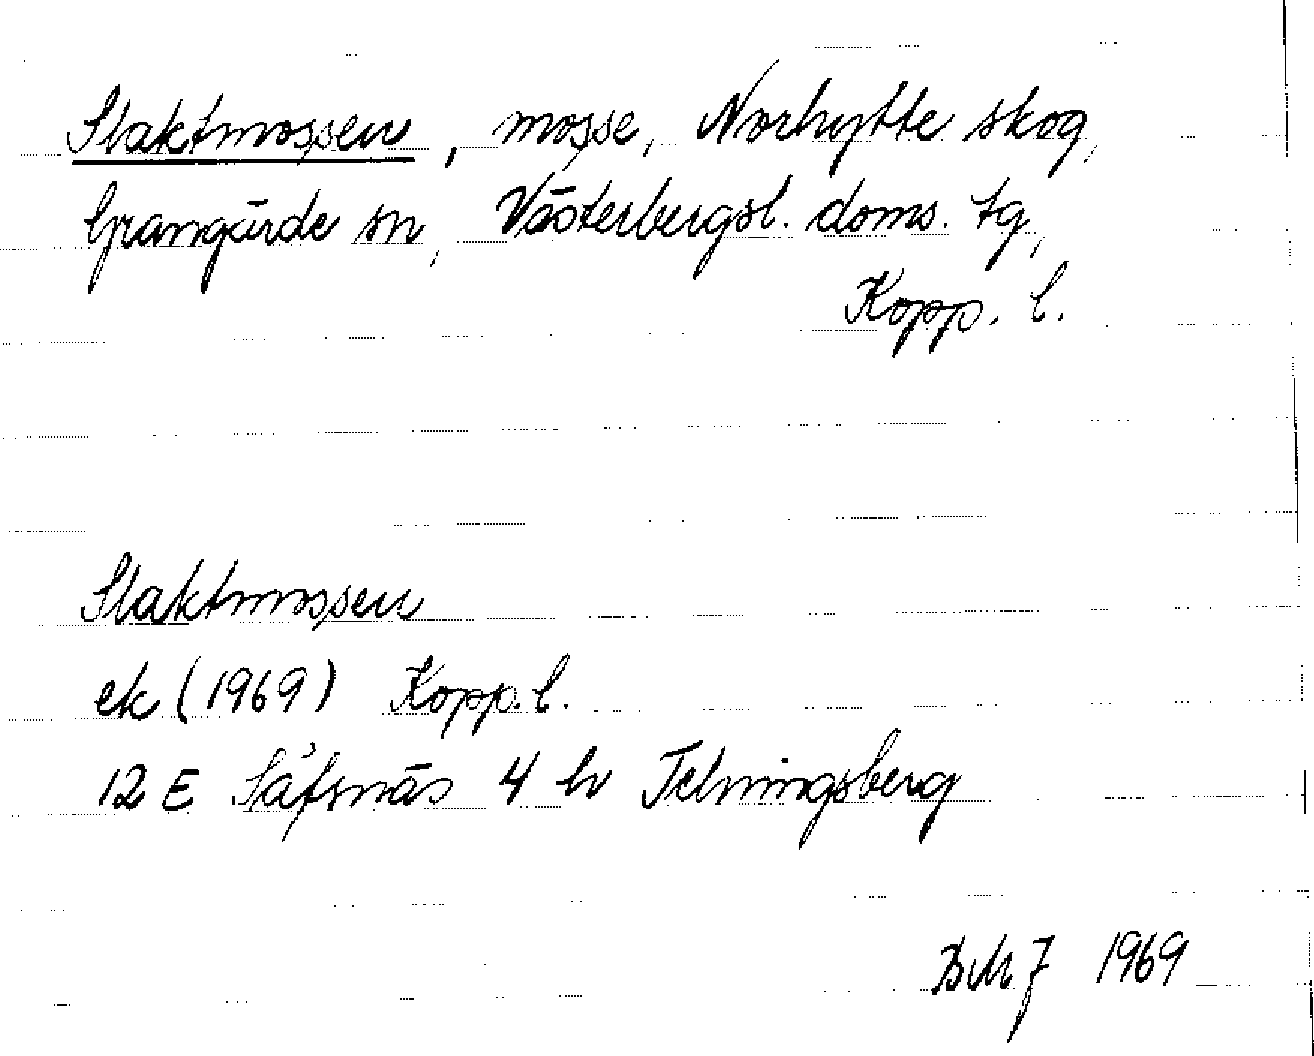 Slaktmossen, mosse, Norhytte skog,
Grangärde sn, Västerbergsl. doms. tg,
Kopp. l.
Slaktmossen
ek (1969) Kopp. l.
12 E Säfsnäs 4 hv Telningsberg
BMJ 1969